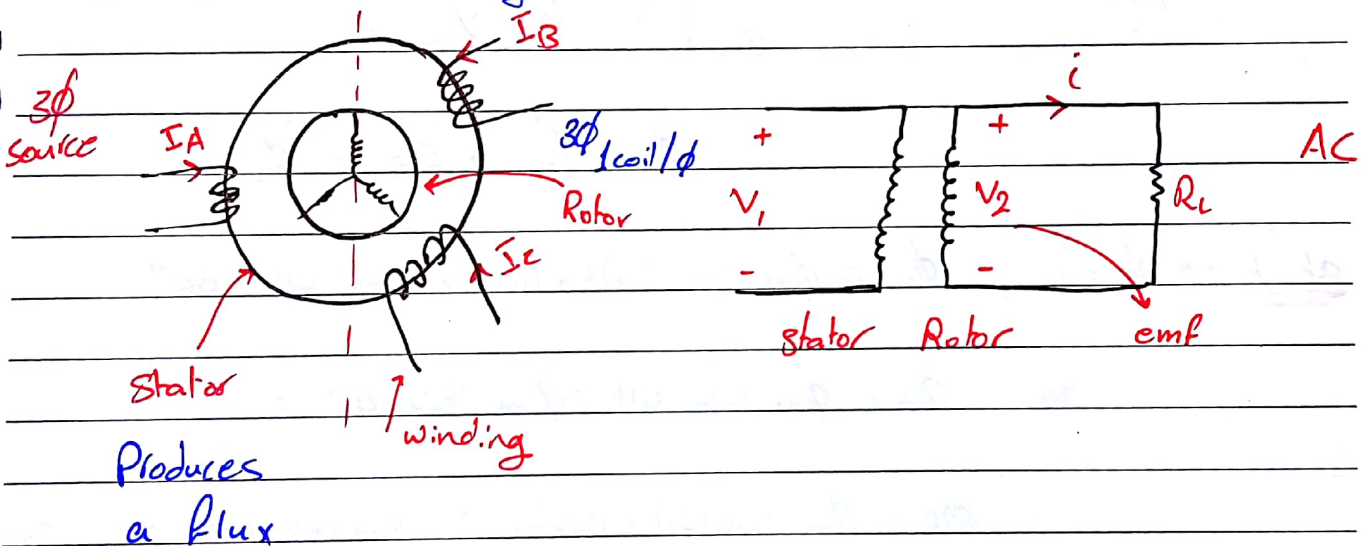 I_B
3φ
source
I_A
3φ 1 coil/φ
Rotor
I_c
Stator
winding
Produces
a flux
i
+
+
AC
V_1
V_2
R_L
-
-
stator
Rotor
emf